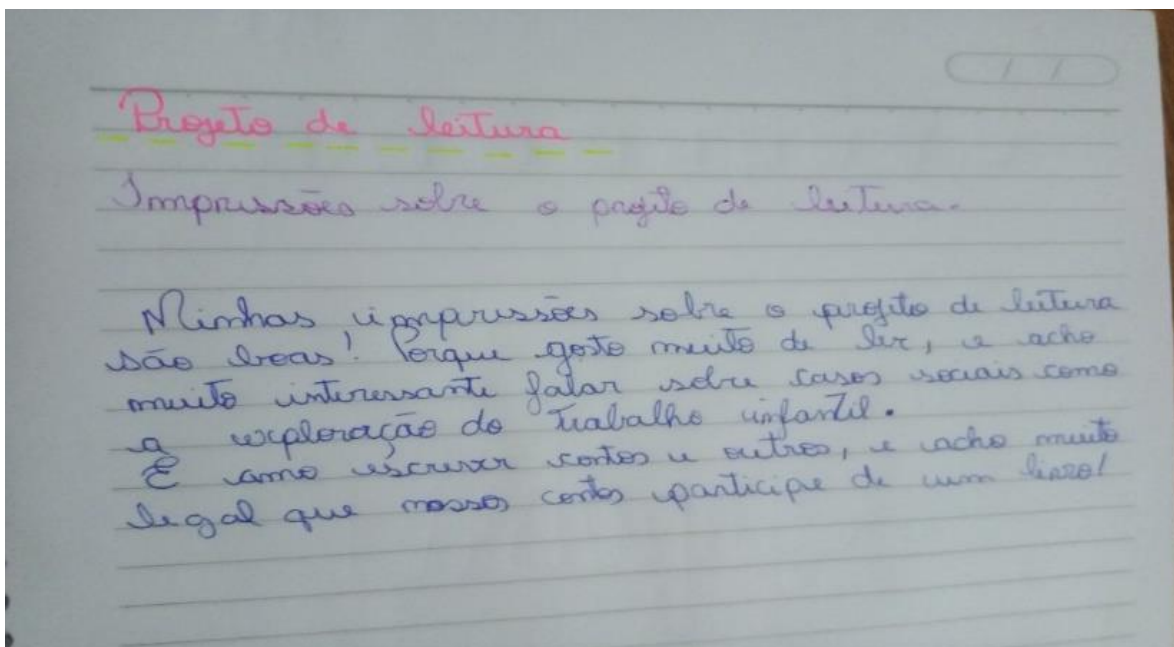 Projeto de leitura
Impressões sobre o projeto de leitura.
Minhas impressões sobre o projeto de leitura
são boas! Porque gosto muito de ler, e acho
muito interessante falar sobre casos sociais como
a exploração do trabalho infantil.
E amo escrever contos e outros, e acho muito
legal que nossos contos participe de um livro!